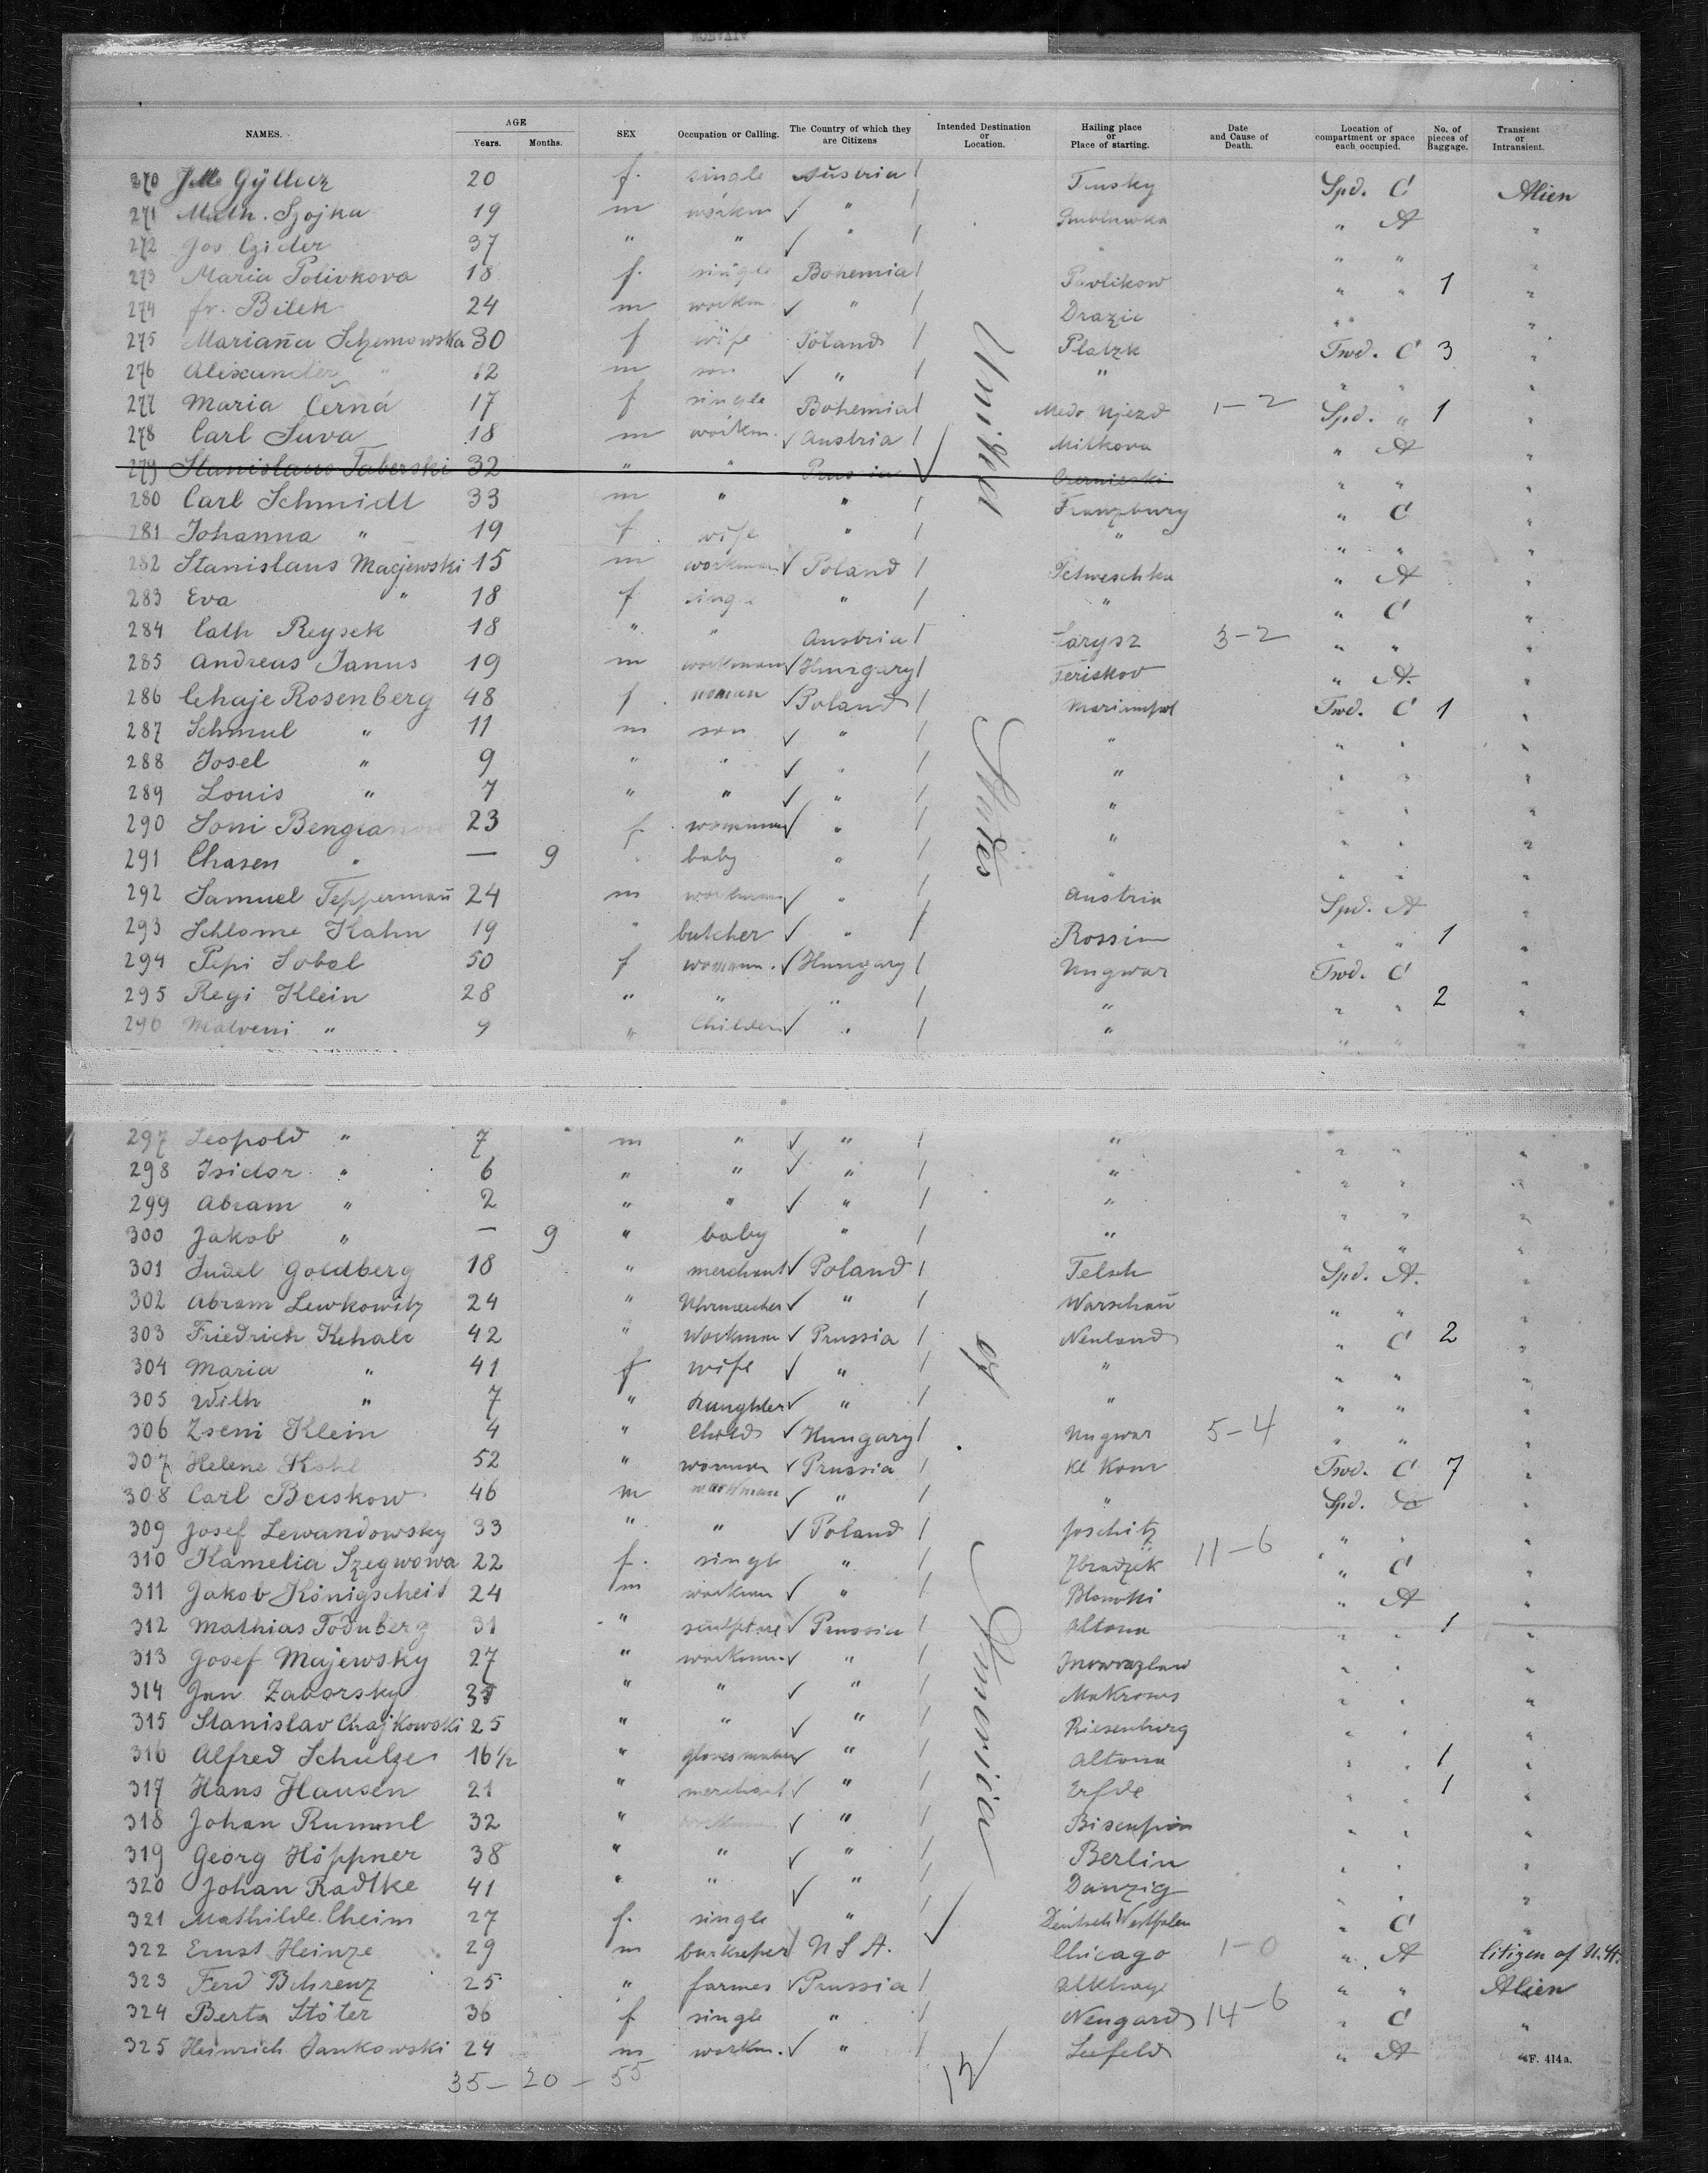 NAMES. AGE Years. Months. SEX Occupation or Calling. The Country of which they are Citizens Intended Destination or Location. Hailing place or Place of starting. Date and Cause of Death. Location of compartment or space each occupied. No. of pieces of Baggage. Transient or Intransient.
United States of America
270 20 f. single Austria / Spd. C Alien
271 Math. Szojka 19 m workm ✓ " / " A "
272 Jos Czider 37 " " ✓ " / " " " "
273 Maria Polivkova 18 f. single Bohemia / Pavlikow " " 1 "
274 fr. Bilek 24 m workm ✓ " / Drazic " " "
275 Mariana Schemowska 30 f wife Poland / Platzk Twd. C 3 "
276 Alixander " 12 m son ✓ " / " " " "
277 Maria Černá 17 f single Bohemia / Medo Ujezd 1-2 Spd. " 1 "
278 Carl Suva 18 m workm. ✓ Austria / Milkova " A "
279 Stanislaus Taberski 32 " " Prussia " " "
280 Carl Schmidt 33 m " " / Franzburg " C "
281 Johanna " 19 f wife " / " " " "
282 Stanislaus Macjewski 15 m workman ✓ Poland / " A "
283 Eva " 18 f single " / " " C "
284 Cath Reysek 18 " " Austria / Sarysz 3-2 " " "
285 Andreas Janus 19 m workman ✓ Hungary / Feriskov " A. "
286 Chaje Rosenberg 48 f woman ✓ Poland / Marimpol Twd. C 1 "
287 Schmul " 11 m son ✓ " / " " " "
288 Josel " 9 " " ✓ " / " " " "
289 Louis " 7 " " ✓ " / " " " "
290 Soni 23 f woman ✓ " / " " " "
291 Chasen " — 9 " baby " / " " " "
292 Samuel Teppermañ 24 m workman ✓ " / Austria Spd. A "
293 Schlome Kahn 19 " butcher ✓ " / Rossin " " 1 "
294 Pepi Sobel 50 f woman. ✓ Hungary / Ungwar Twd. C "
295 Regi Klein 28 " " " / " " " 2 "
296 Malveni " 9 " Children ✓ " / " " " "
297 Leopold " 7 m " ✓ " / " " " "
298 Isidor " 6 " " ✓ " / " " " "
299 Abram " 2 " " ✓ " / " " " "
300 Jakob " — 9 " baby " / " " " "
301 Judel Goldberg 18 " merchant ✓ Poland / Telsch Spd. A. "
302 Abram Lewkowitz 24 " Uhrmacher ✓ " / Warschaŭ " " "
303 Friedrich Kehale 42 " Workman ✓ Prussia / Neuland " C 2 "
304 Maria " 41 f wife ✓ " / " " " "
305 Wilh " 7 " daughter ✓ " / " " " "
306 Zseni Klein 4 " Child ✓ Hungary / Ungwar 5-4 " " "
307 Helene Kohl 52 " woman ✓ Prussia / Kl Konr Twd. C 7 "
308 Carl Buskow 46 m workman ✓ " / " Spd. "
309 Josef Lewandowsky 33 " " ✓ Poland / Joschitz " " "
310 Kamelia Szegwowa 22 f. single " / Zbradzek 11-6 " C "
311 Jakob Königscheid 24 m workman ✓ " / Blonski " A "
312 Mathias Toduberg 31 " sculpture ✓ Prussia / Altona " " 1 "
313 Josef Majewsky 27 " workman ✓ " / Inowrazlaw " " "
314 Jan Zaborsky " " ✓ " / Makrows " " "
315 Stanislav Chajkowski 25 " " ✓ " / Riesenburg " " "
316 Alfred Schulze 16 1/2 " glovesmaker ✓ " / Altona " " 1 "
317 Hans Hansen 21 " merchant ✓ " / Erfde " " 1 "
318 Johan Rummel 32 " workman ✓ " / " " "
319 Georg Höppner 38 " " ✓ " / Berlin " " "
320 Johan Radtke 41 " " ✓ " / Danzig " " "
321 Mathilde Cheim 27 f. single " / Deutsch Westfalen " C "
322 Ernst Heinze 29 m barkeeper N S A. Chicago 1-0 " A Citizen of U.St.
323 Ferd Behrenz 25 " farmer ✓ Prussia / Althage " " Alien
324 Berta Stöter 36 f single " / Neugard 14-6 " C "
325 Heinrich Jankowski 24 m workm. ✓ " / Seefeld " A "
35 — 20 — 55 12
F. 414a.